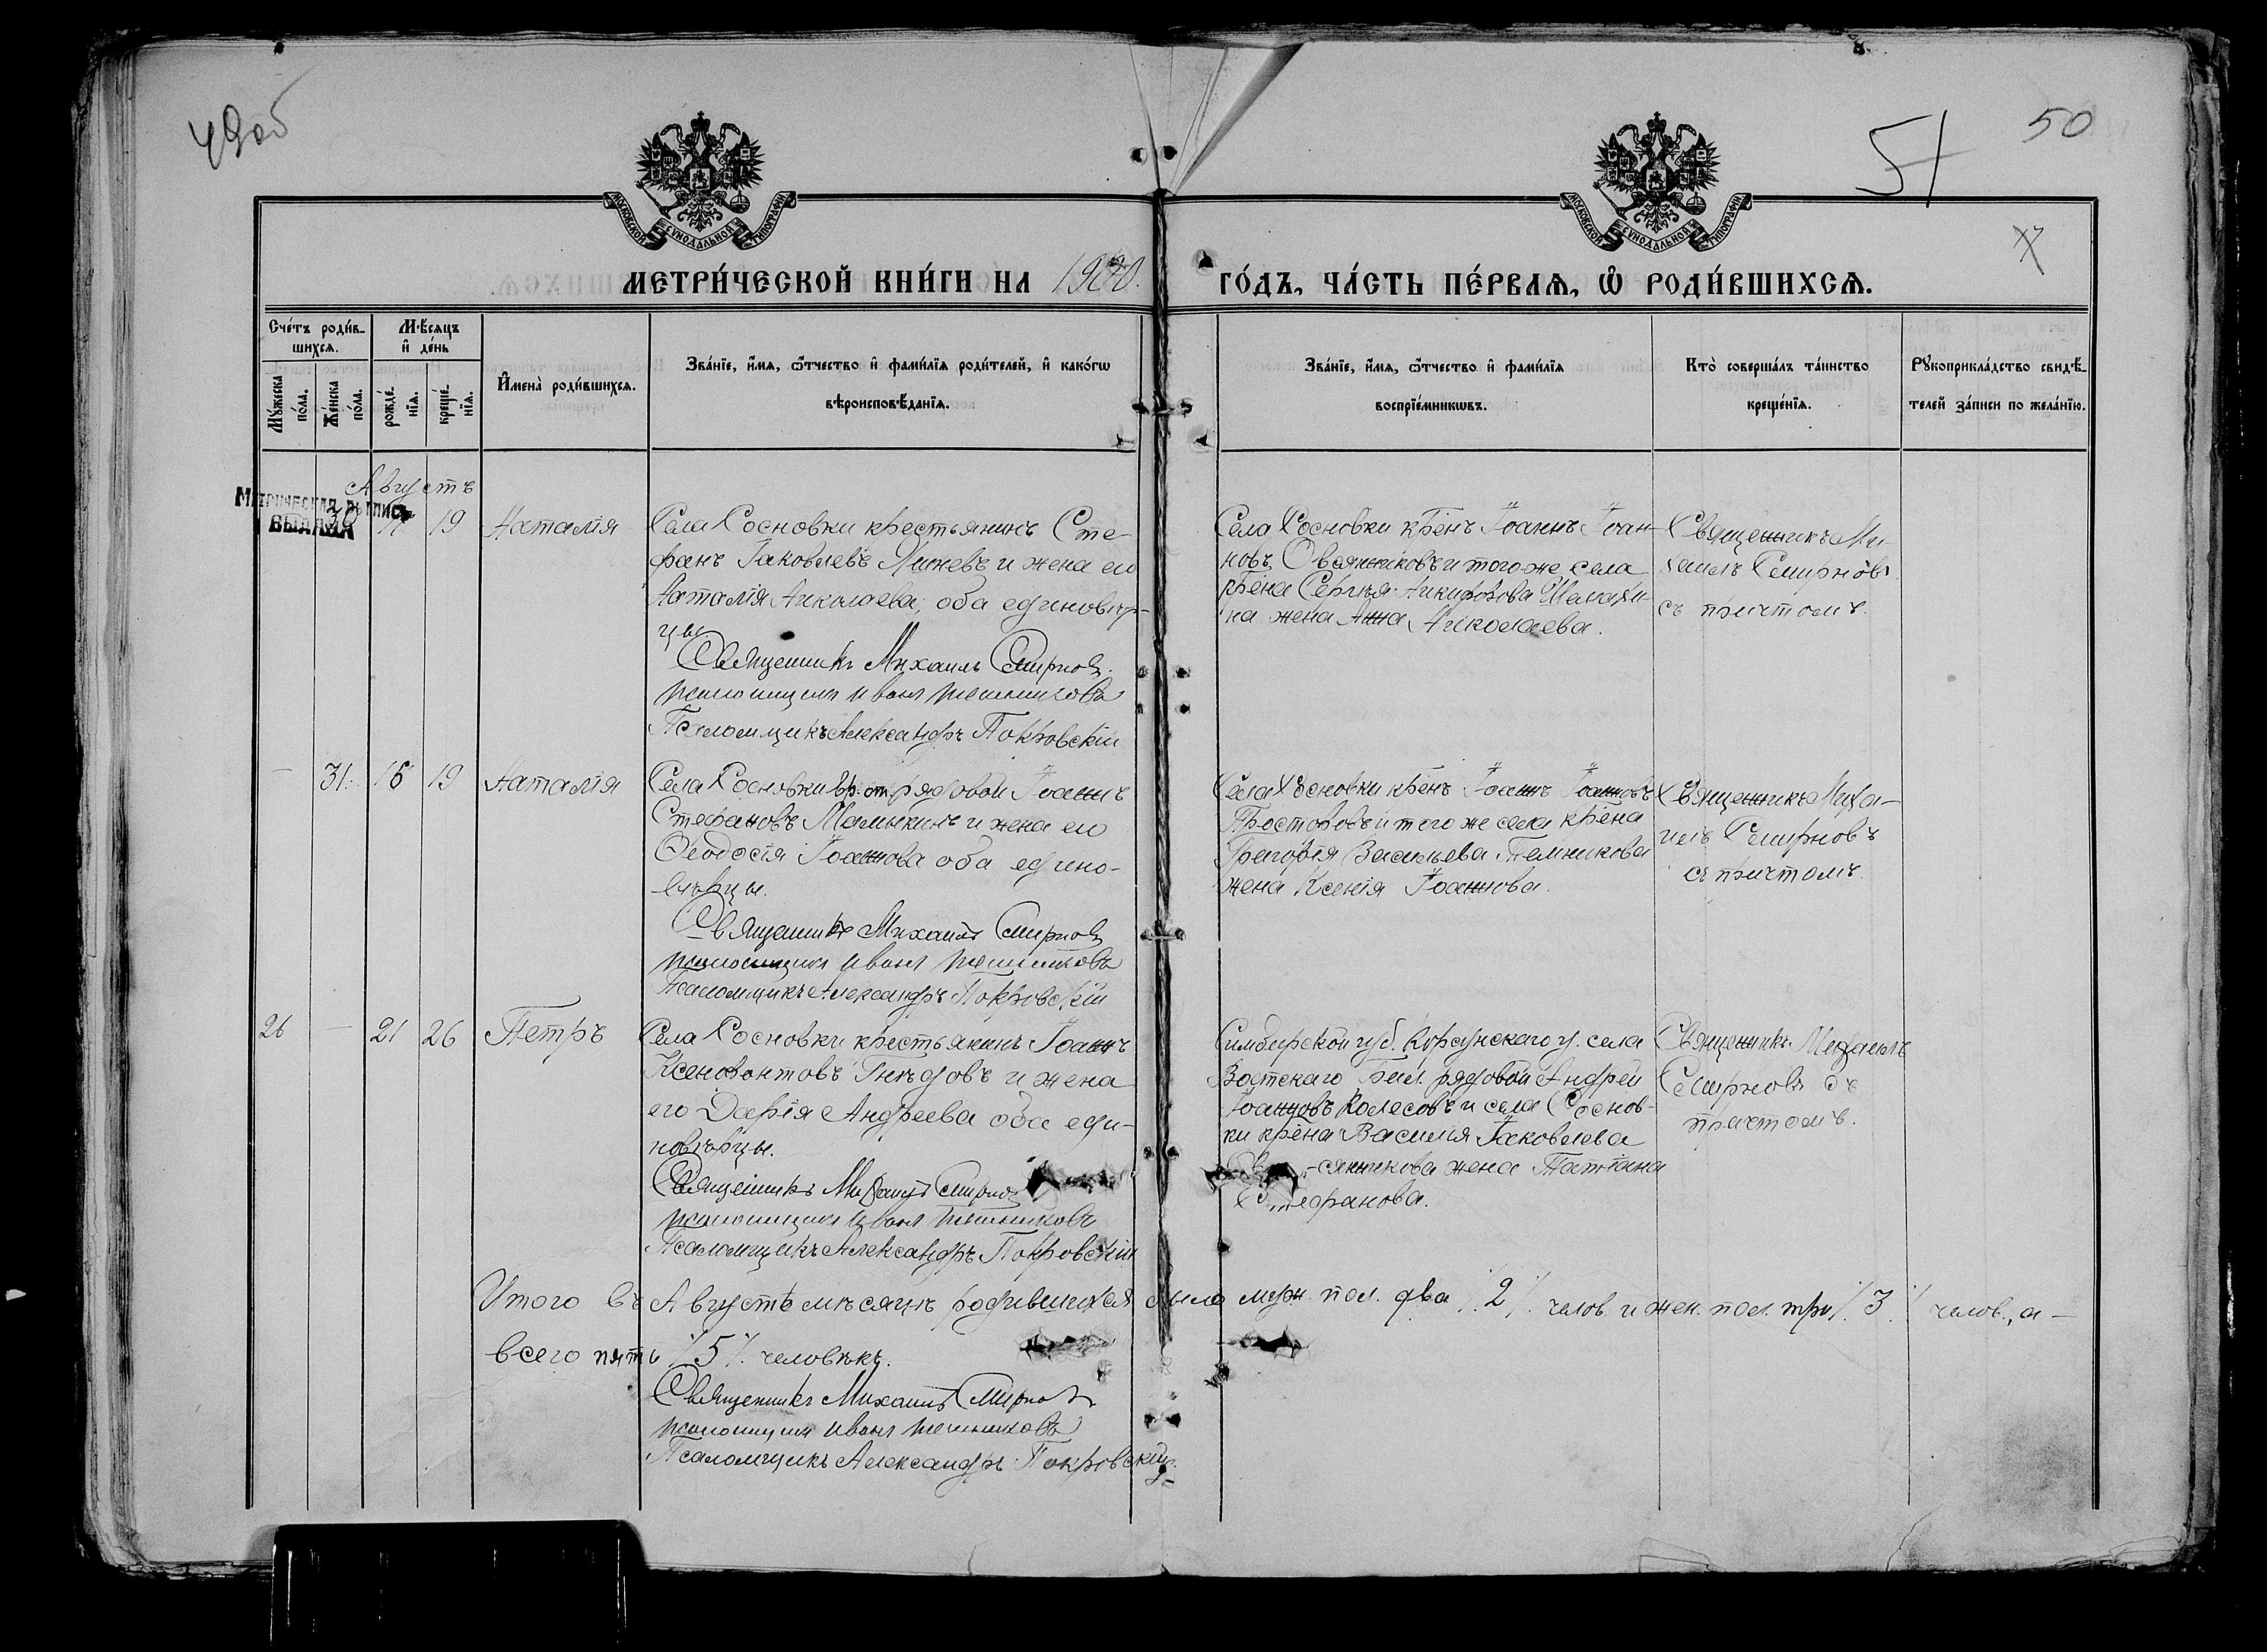 49об
51
50
МОСКОВСКОЙ СѴНОДАЛЬНОЙ ТИПОГРАФІИ
МОСКОВСКОЙ СѴНОДАЛЬНОЙ ТИПОГРАФІИ
МЕТРИ́ЧЕСКОЙ КНИ́ГИ НА
ГО́ДЪ, ЧА́СТЬ ПЕ́РВАѦ, Ѡ҆ РОДИ́ВШИХСѦ.
Сче́тъ роди́в-
шихсѧ.
Мꙋ́жеска
по́ла.
Же́нска
по́ла.
Мѣ́сѧцъ
и҆ де́нь
рожде́-
нїѧ.
креще́-
нїѧ.
И҆мена̀ роди́вшихсѧ.
Зва́нїе, и҆́мѧ, ѻ҆́тчество и҆ фами́лїѧ роди́телей, и҆ како́гѡ
вѣроисповѣ́данїѧ.
Зва́нїе, и҆́мѧ, ѻ҆́тчество и҆ фами́лїѧ
воспрїе́мникѡвъ.
Кто̀ соверша́лъ та́инство
креще́нїѧ.
Рꙋкоприкла́дство свидѣ́-
телей за́писи по жела́нїю.
Августъ
МЕТРИЧЕСКАЯ ВЫПИСЬ
ВЫДАНА
30 19 Наталія
Села Сосновки крестьянинъ Сте-
фанъ Іаковлевъ и жена его
Наталія Николаева, оба единовѣр-
цы
Священникъ Михаилъ Смирновъ.
псаломщикъ Иванъ
Псаломщикъ Александръ Покровскій
Села Сосновки кр̃енъ Іоаннъ Іоан-
новъ Овсянниковъ и того же села
кр̃ена Сергѣя Никифорова
на жена Анна Николаева.
Священникъ Ми-
хаилъ Смирновъ
съ причтомъ.
— 31. 16 19 Наталія
Села Сосновки вр. от. рядовой Іоаннъ
Стефановъ Малыкинъ и жена его
Ѳеодосія Іоаннова оба едино-
вѣрцы.
Священникъ Михаилъ Смирновъ
псаломщикъ Иванъ
Псаломщикъ Александръ Покровскій
Села Сосновки кр̃енъ Іоаннъ Іоанновъ
Просторовъ и того же села кр̃ена
Григорія Васильева Темникова
жена Ксенія Іоаннова.
Священникъ Миха-
илъ Смирновъ
съ причтомъ.
26 — 21 26 Петръ
Села Сосновки крестьянинъ Іоаннъ
Ксенофонтовъ Гнѣдовъ и жена
его Дарія Андреева оба еди-
новѣрцы.
Священникъ Михаилъ Смирновъ
псаломщикъ Иванъ
Псаломщикъ Александръ Покровскій
Симбирской губ. Корсунскаго у. села
рядовой Андрей
Іоанновъ Колесовъ и села Соснов-
ки кр̃ена Василія Іаковлева
жена Татіана
Священникъ Михаилъ
Смирновъ съ
причтомъ.
Итого въ Августѣ мѣсяцѣ родившихся было муж. пол. два ./. 2 ./. челов. и жен. пол. три ./. 3 ./. челов., а —
всего пять ./. 5 ./. человѣкъ.
Священникъ Михаилъ Смирновъ
псаломщикъ Иванъ
Псаломщикъ Александръ Покровскій.